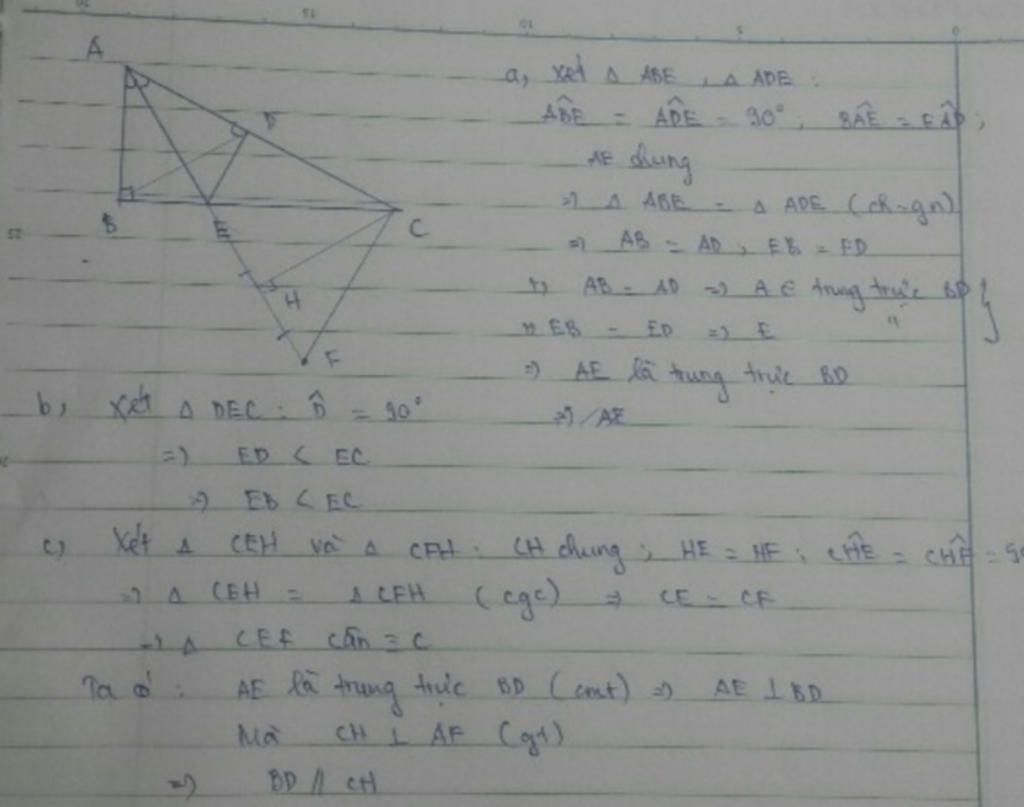 A
D
B
E
C
H
F
a, Xét Δ ABE, Δ ADE :
ABÊ = ADÊ = 90° ; BÂE = EÂD ;
AE chung
=> Δ ABE = Δ ADE (ch-gn)
=> AB = AD, EB = ED
+, AB = AD => A ∈ trung trực BD
+, EB = ED => E "
=> AE là trung trực BD
=> AE
b, Xét Δ DEC : D̂ = 90°
=> ED < EC
=> EB < EC
c, Xét Δ CEH và Δ CFH : CH chung ; HE = HF ; CĤE = CĤF = 90
=> Δ CEH = Δ CFH (cgc) => CE = CF
=> Δ CEF cân ≡ C
Ta có : AE là trung trực BD (cmt) => AE ⊥ BD
Mà CH ⊥ AF (gt)
=> BD // CH